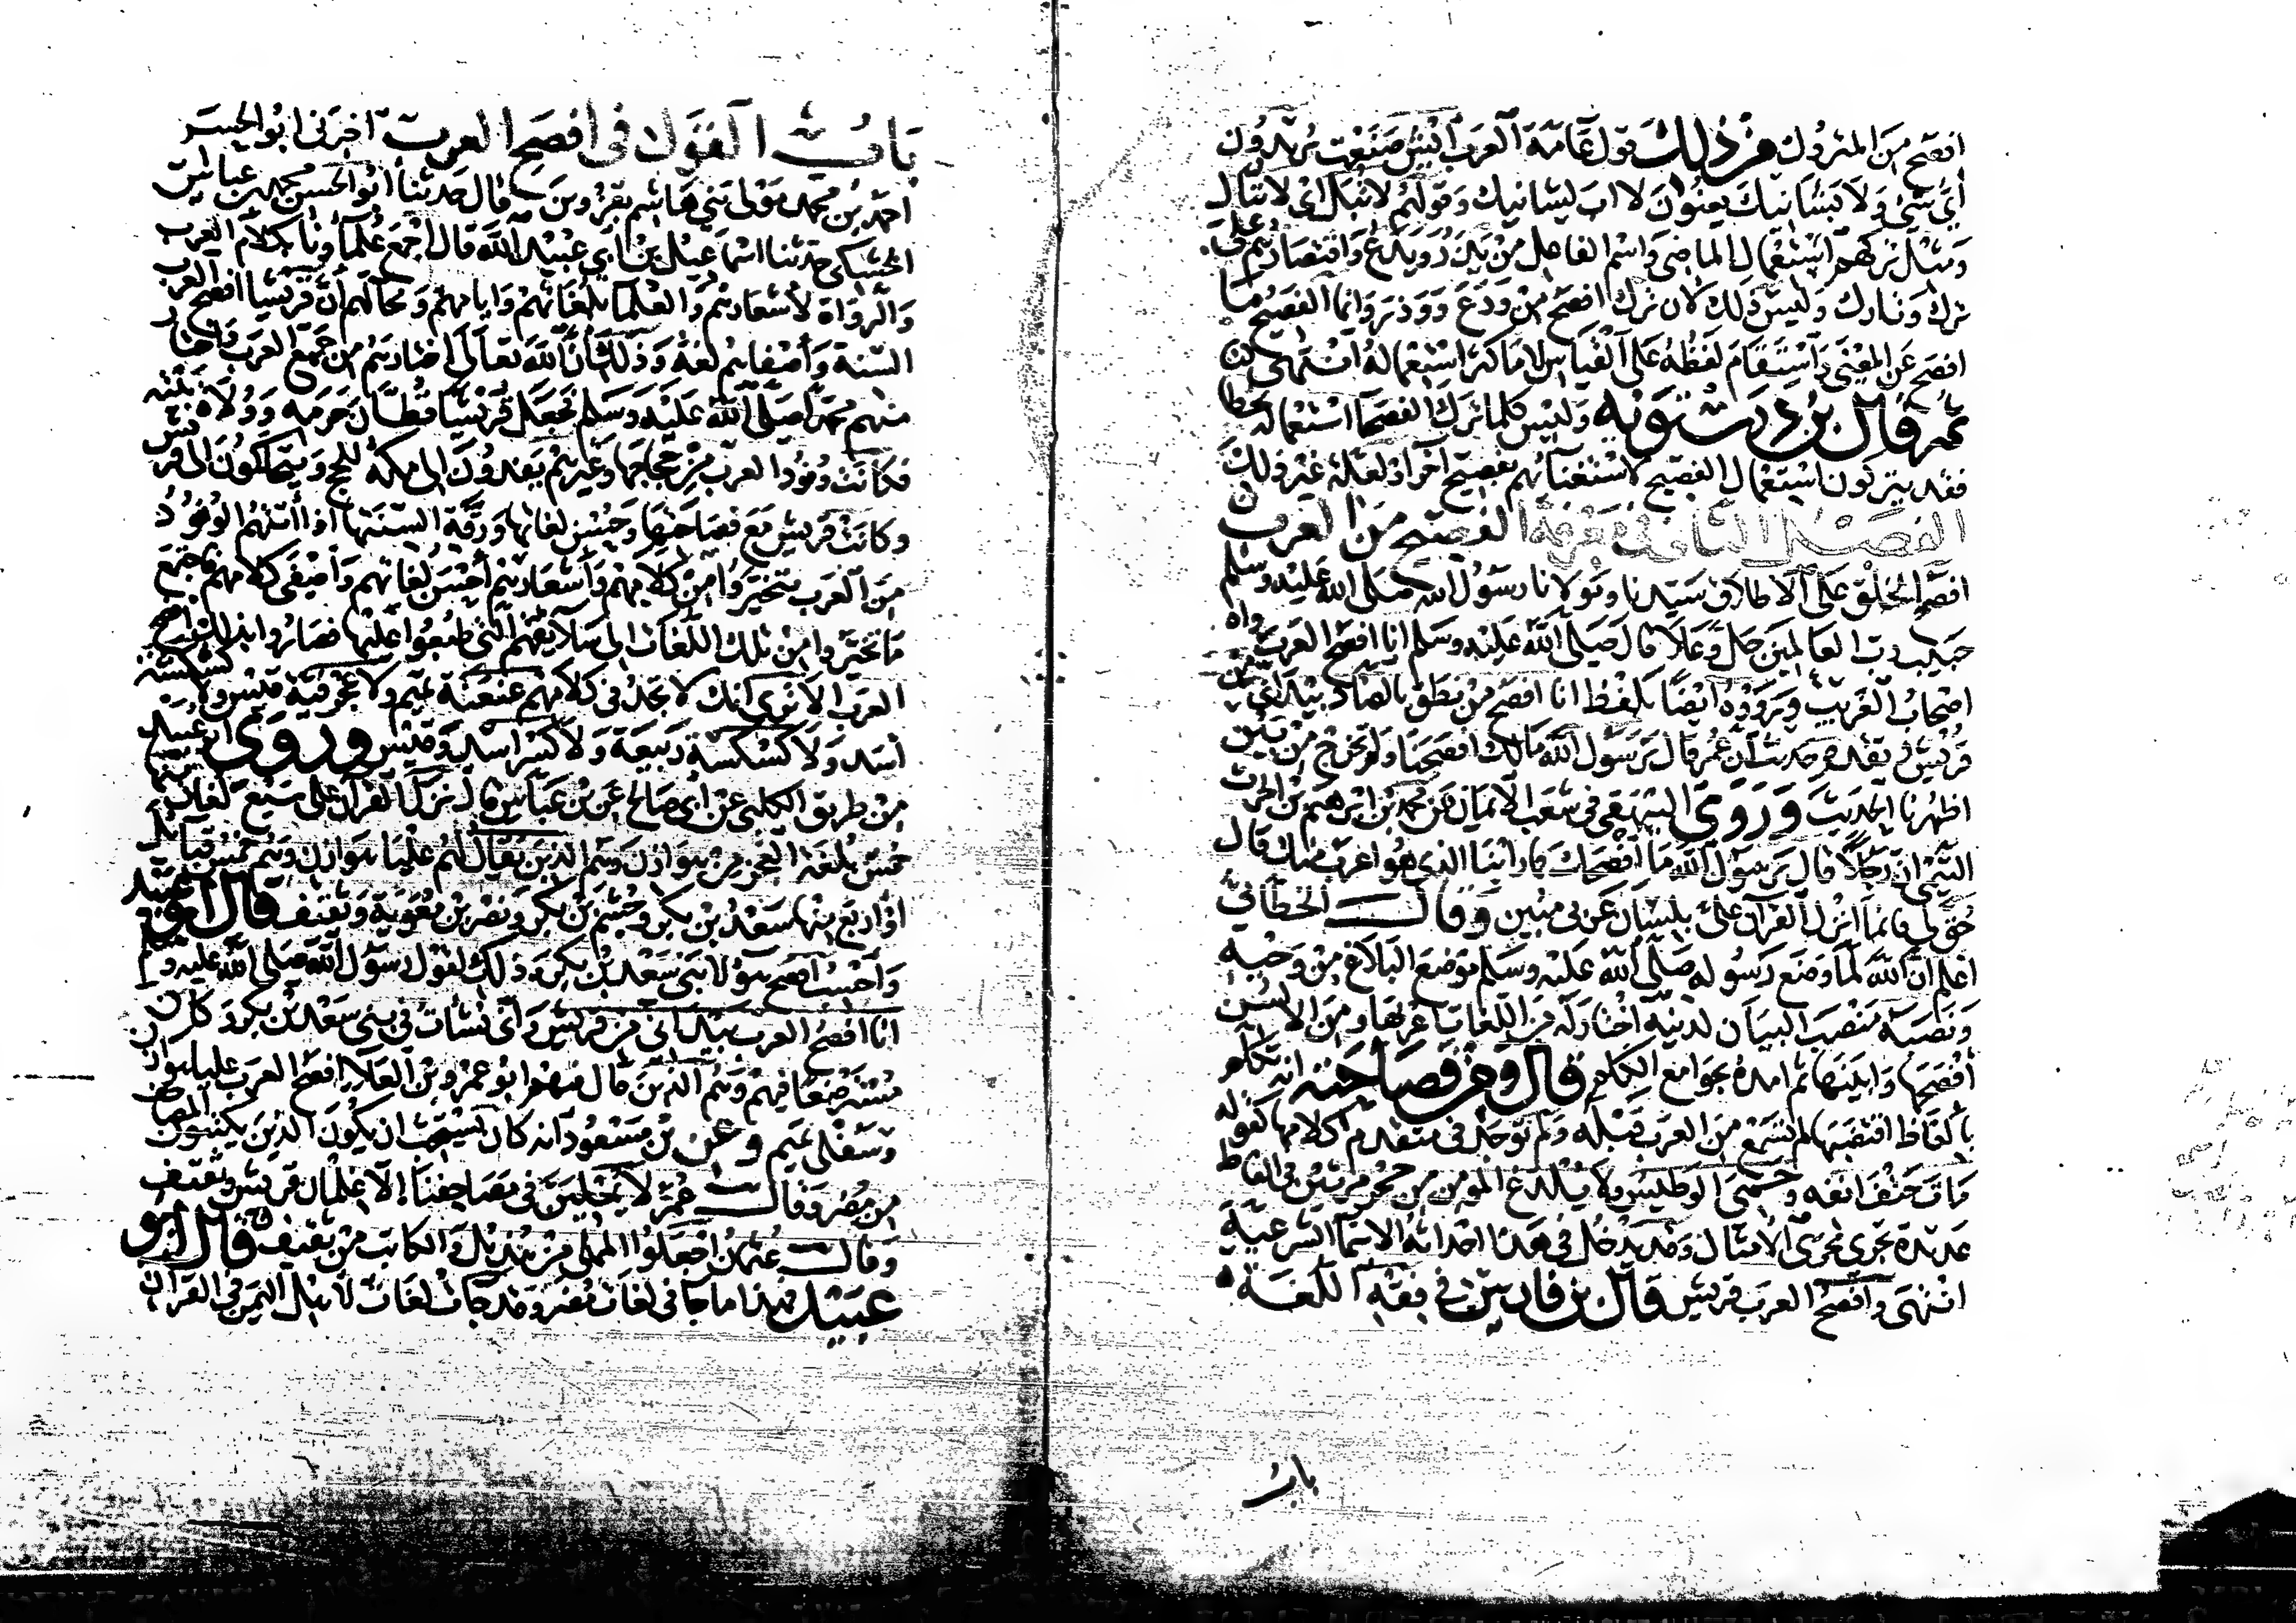 افصح من المتروك فمن ذلك قول عامة العرب ايش صنعت يريدون
اي شي ولا بشانيك يعنون لا اب لشانيك وقولهم لا تبل اى لا تبال
ومثل تركهم استعمال الماضى واسم الفاعل من يذر ويدع واقتصارهم على
ترك وتارك وليس ذلك لان ترك افصح من ودع ووذر وانما الفصيح ما
افصح عن المعنى واستقام لفظه على القياس لا ما كثر استعماله انتهى
ثم قال بن درستويه وليس كلما ترك الفصحا استعماله بخطا
فقد يتركون استعمال الفصيح لاستغنائهم بفصيح اخر او لعلة غير ذلك
الفصل الثانى فى معرفة الفصيح من العرب
افصح الخلق على الاطلاق سيدنا ومولانا رسول الله صلى الله عليه وسلم
حبيب رب العالمين جل وعلا قال صلى الله عليه وسلم انا افصح العرب رواه
اصحاب الغريب ورووه ايضا بلفظ انا افصح من نطق بالضاد بيد انى من
قريش وتقدم حديث ان عمر قال يرسول الله مالك افصحنا ولم تخرج من بين
اظهرنا الحديث وروى البيهقى فى شعب الايمان عن محمد بن ابرهيم بن الحرث
التيمى ان رجلا قال يرسول الله ما افصحك فما راينا الذى هو اعرب منك قال
حق لى فانما انزل القران على بلسان عربى مبين وقال الخطابى
اعلم ان الله لما وضع رسوله صلى الله عليه وسلم موضع البلاغ من وحيه
ونصبه منصب البيان لدينه اختار له من اللغات اعربها ومن الالسن
افصحها وابينها ثم امده بجوامع الكلم قال ومن فصاحته انه تكلم
بالفاظ اقتضبها لم تسمع من العرب قبله ولم توجد فى متقدم كلامها كقوله
مات حتف انفه وحمى الوطيس ولا يلدغ المومن من جحر مرتين فى الفاظ
عديدة تجرى مجرى الامثال وقد يدخل فى هذا احداثه الاسما الشرعية
انتهى وافصح العرب قريش قال بن فارس فى فقه اللغة
باب
باب القول فى افصح العرب اخبرنى ابو الحسن
احمد بن محمد مولى بنى هاشم بقزوين قال حدثنا ابو الحسن محمد بن عباس
الخشكى حدثنا اسماعيل بن ابى عبيد الله قال اجمع علماونا بكلام العرب
والرواة لاشعارهم والعلما بلغاتهم وايامهم ومحالهم ان قريشا افصح العرب
السنة واصفاهم لغة وذلك ان الله تعالى اختارهم من جميع العرب واختار
منهم محمدا صلى الله عليه وسلم فجعل قريشا قطان حرمه وولاة بيته
فكانت وفود العرب من حجاجها وغيرهم يفدون الى مكة للحج ويتحاكمون الى قريش
وكانت قريش مع فصاحتها وحسن لغاتها ورقة السنتها اذا اتتهم الوفود
من العرب تخيروا من كلامهم واشعارهم احسن لغاتهم واصفى كلامهم فاجتمع
ما تخيروا من تلك اللغات الى سلايقهم التى طبعوا عليها فصاروا بذلك افصح
العرب الا ترى انك لا تجد فى كلامهم عنعنة تميم ولا عجرفية قيس ولا كشكشة
اسد ولا كسكسة ربيعة ولا كسر اسد وقيس وروى ابو عبيد
من طريق الكلبى عن ابى صالح عن بن عباس قال نزل القران على سبع لغات منها
خمس بلغة العجز من هوازن وهم الذين يقال لهم عليا هوازن وهم خمس قبايل
او اربع منها سعد بن بكر وجشم بن بكر ونصر بن معوية وثقيف قال ابو عبيد
واحسب افصح هولا بنى سعد بن بكر وذلك لقول رسول الله صلى الله عليه وسلم
انا افصح العرب بيد انى من قريش وانى نشات فى بنى سعد بن بكر وكان
مسترضعا فيهم وهم الذين قال فيهم ابو عمرو بن العلا افصح العرب عليا هوازن
وسفلى تميم وعن بن مسعود انه كان يستحب ان يكون الذين يكتبون المصاحف
من مضر وقال عمر لا يملين فى مصاحفنا الا غلمان قريش وثقيف
وقال عثمان اجعلوا المملى من هذيل والكاتب من ثقيف قال ابو
عبيد فهذا ما جا فى لغات مضر وقد جات لغات لاهل اليمن فى القران